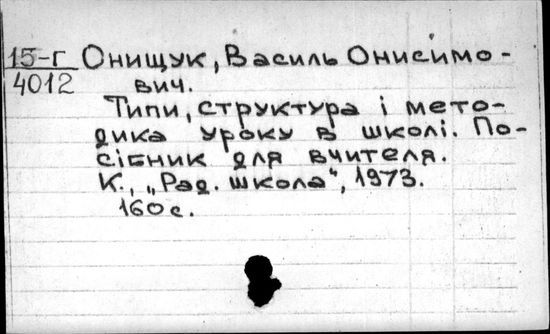 15-г Онищук, Василь Онисимо-
4012 вич.
Типи, структура і мето-
дика уроку в школі. По-
сібник для вчителя.
К., „Рад. школа", 1973.
160 с.